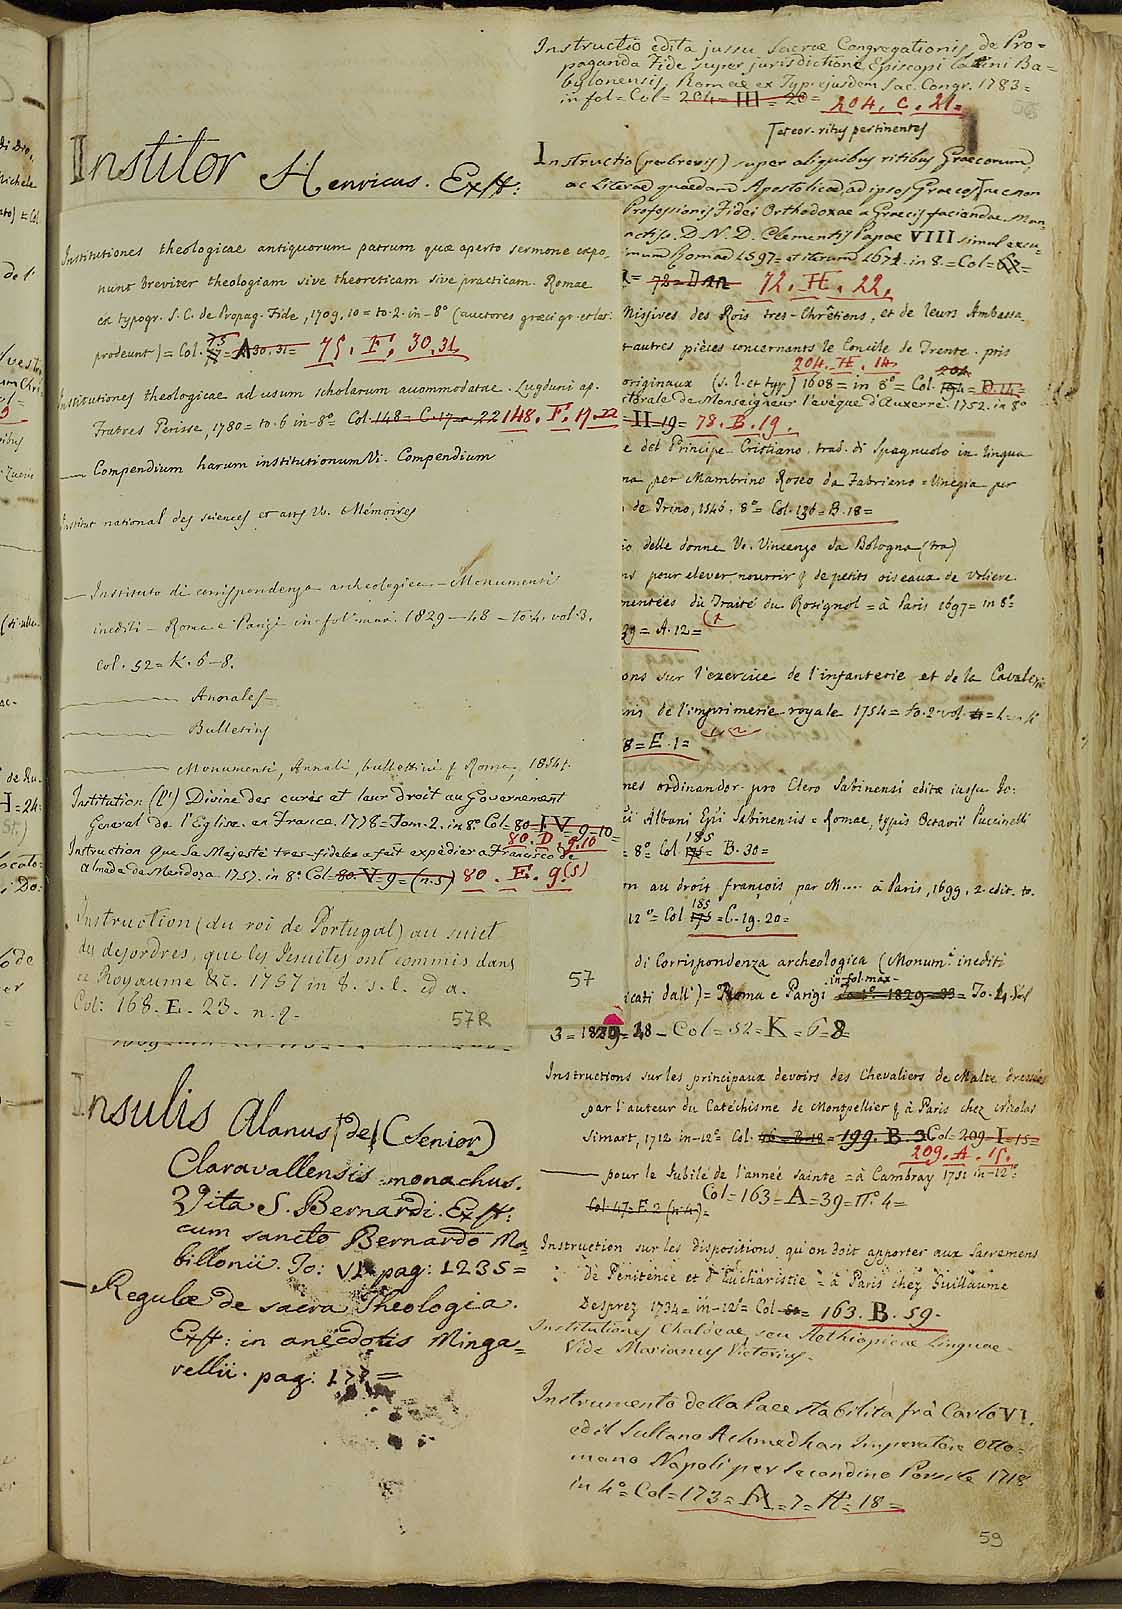 Institor Henricus. Exst:
Institutiones theologicae antiquorum patrum quae aperto sermone expo
nunt breviter theologiam sive theoreticam sive practicam. Romae
ex typogr. S. C. de Propag. Fide, 1709, 10 = to. 2. in-8° (auctores graeci gr. et lat.
prodeunt) = Col. 75 = A 30. 31 = 75. F. 30. 31.
Institutiones theologicae ad usum scholarum accommodatae. Lugduni ap.
Fratres Perisse, 1780 = to. 6 in-8° Col. 148 = C. 17 = 22 148. F. 17. 22
— Compendium harum institutionum Vi. Compendium
Institut national des sciences et arts Vo. Mémoires
— Instituto di corrispondenza archeologica — Monumenti
inediti — Roma e Parigi in fol. max. 1829 — 48 — to. 4. vol. 3.
Col. 52 = K. 6 — 8.
— Annales
— Bulletins
— Monumenti, Annali, bullettini & Roma, 1854.
Institution (l') Divine des curés et leur droit au Governement
General de l'Eglise. en France. 1778 = Tom. 2. in 8° Col = 80 = IV = 9 = 10 =
80. D. 9. 10
Instruction que Sa Majesté tres-fidele a fait expédier a Francisco de
Almada da Mendoza 1757. in 8° Col = 80 = V = 9 = (n. 5) 80. E. 9. (5)
Instruction (du roi de Portugal) au sujet
des desordres, que les Jesuites ont commis dans
ce Royaume &c. 1757 in 8. s. l. ed a.
Col: 168. E. 23. n. 9.
57R
Insulis Alanus de (Senior)
Claravallensis monachus.
Vita S. Bernardi. Exst:
cum sancto Bernardo Ma
billonii. To: VI. pag: 1235 =
— Regulae de sacra Theologia.
Exst: in anecdotis Minga=
rellii. pag: 177 =
Instructio edita jussu Sacrae Congregationis de Pro=
paganda Fide super jurisdictione Episcopi latini Ba=
bylonensis, Romae ex Typ. ejusdem Sac. Congr. 1783 =
in fol = Col = 204 = III = 20 = 204. C. 21 =
ritus pertinentes
Instructio (perbrevis) super aliquibus ritibus Graecorum,
ac Literae quaedam Apostolicae, ad ipsos Graecos, nec non
Professionis Fidei Orthodoxae a Graecis faciendae
D. N. D. Clementis Papae VIII simul excu=
Romae 1597 = et iterum 1671. in 8. = Col = 67 =
72 = D 22 72. H. 22.
Missives des Rois tres-Chrétiens, et de leurs Ambassa
autres pièces concernants le Concile de Trente. pris
204. H. 14.
originaux (s. l. et typ.) 1608 = in 8° = Col. 204 = D. 14 =
de Monseigneur l'evêque d'Auxerre. 1752. in 8°
II = 19 = 78. B. 19.
e del Principe Cristiano. trad. di Spagnuolo in lingua
na per Mambrino Roseo da Fabriano = Vinegia per
de Trino, 1546. 8° = Col. 136 = B. 18 =
delle donne Vo. Vincenzo da Bologna (fra)
pour elever, nourrir & de petits oiseaux de Voliere
mentées du Traité du Rosignol = à Paris 1697 = in 8°
39 = A. 12 =
ons sur l'exercice de l'infanterie et de la Cavalerie
de l'imprimerie royale 1754 = to. 2 vol.
8 = E. 1 =
nes ordinandor. pro Clero Sabinensi editae iussu Jo:
Albani Epi Sabinensis = Romae, typis Octavii Puccinelli
= 8° Col. 185 = B. 30 =
au droit françois par M.... à Paris, 1699. 2. edit. to.
12° = Col. 185 = C. 19. 20 =
di Corrispondenza archeologica (Monum.i inediti
in fol. max.
icati dall') = Roma e Parigi 1829 = 33 = To. 4. Vol
57
3 = 1829 = 48 — Col = 52 = K = 6 = 8
Instructions sur les principaux devoirs des Chevaliers de Malte, dressées
par l'auteur du Catéchisme de Montpellier & à Paris chez Nicolas
Simart, 1712 in-12° Col. 16 = B. 18 = 199. B. 9 Col = 209 = I = 15 =
209. A. 15.
— pour le Jubilé de l'année sainte = à Cambray 1751 in-12°
Col. 47. F. 2 (n. 4) = Col = 163 = A = 39 = n° 4 =
Instruction sur les dispositions qu'on doit apporter aux Sacremens
de Penitence et d'Eucharistie = à Paris chez Guillaume
Desprez 1734 = in-12° Col = 163. B. 59.
Institutiones Chaldeae, seu Aethiopicae Linguae.
Vide Marianus Victorius.
Instrumento della Pace stabilita frà Carlo VI.
ed il Sultano Achmedhan Imperatore Otto=
mano Napoli per Secondino Porsile 1718
in 4° = Col = 173 = A = 7 = N° = 18 =
59